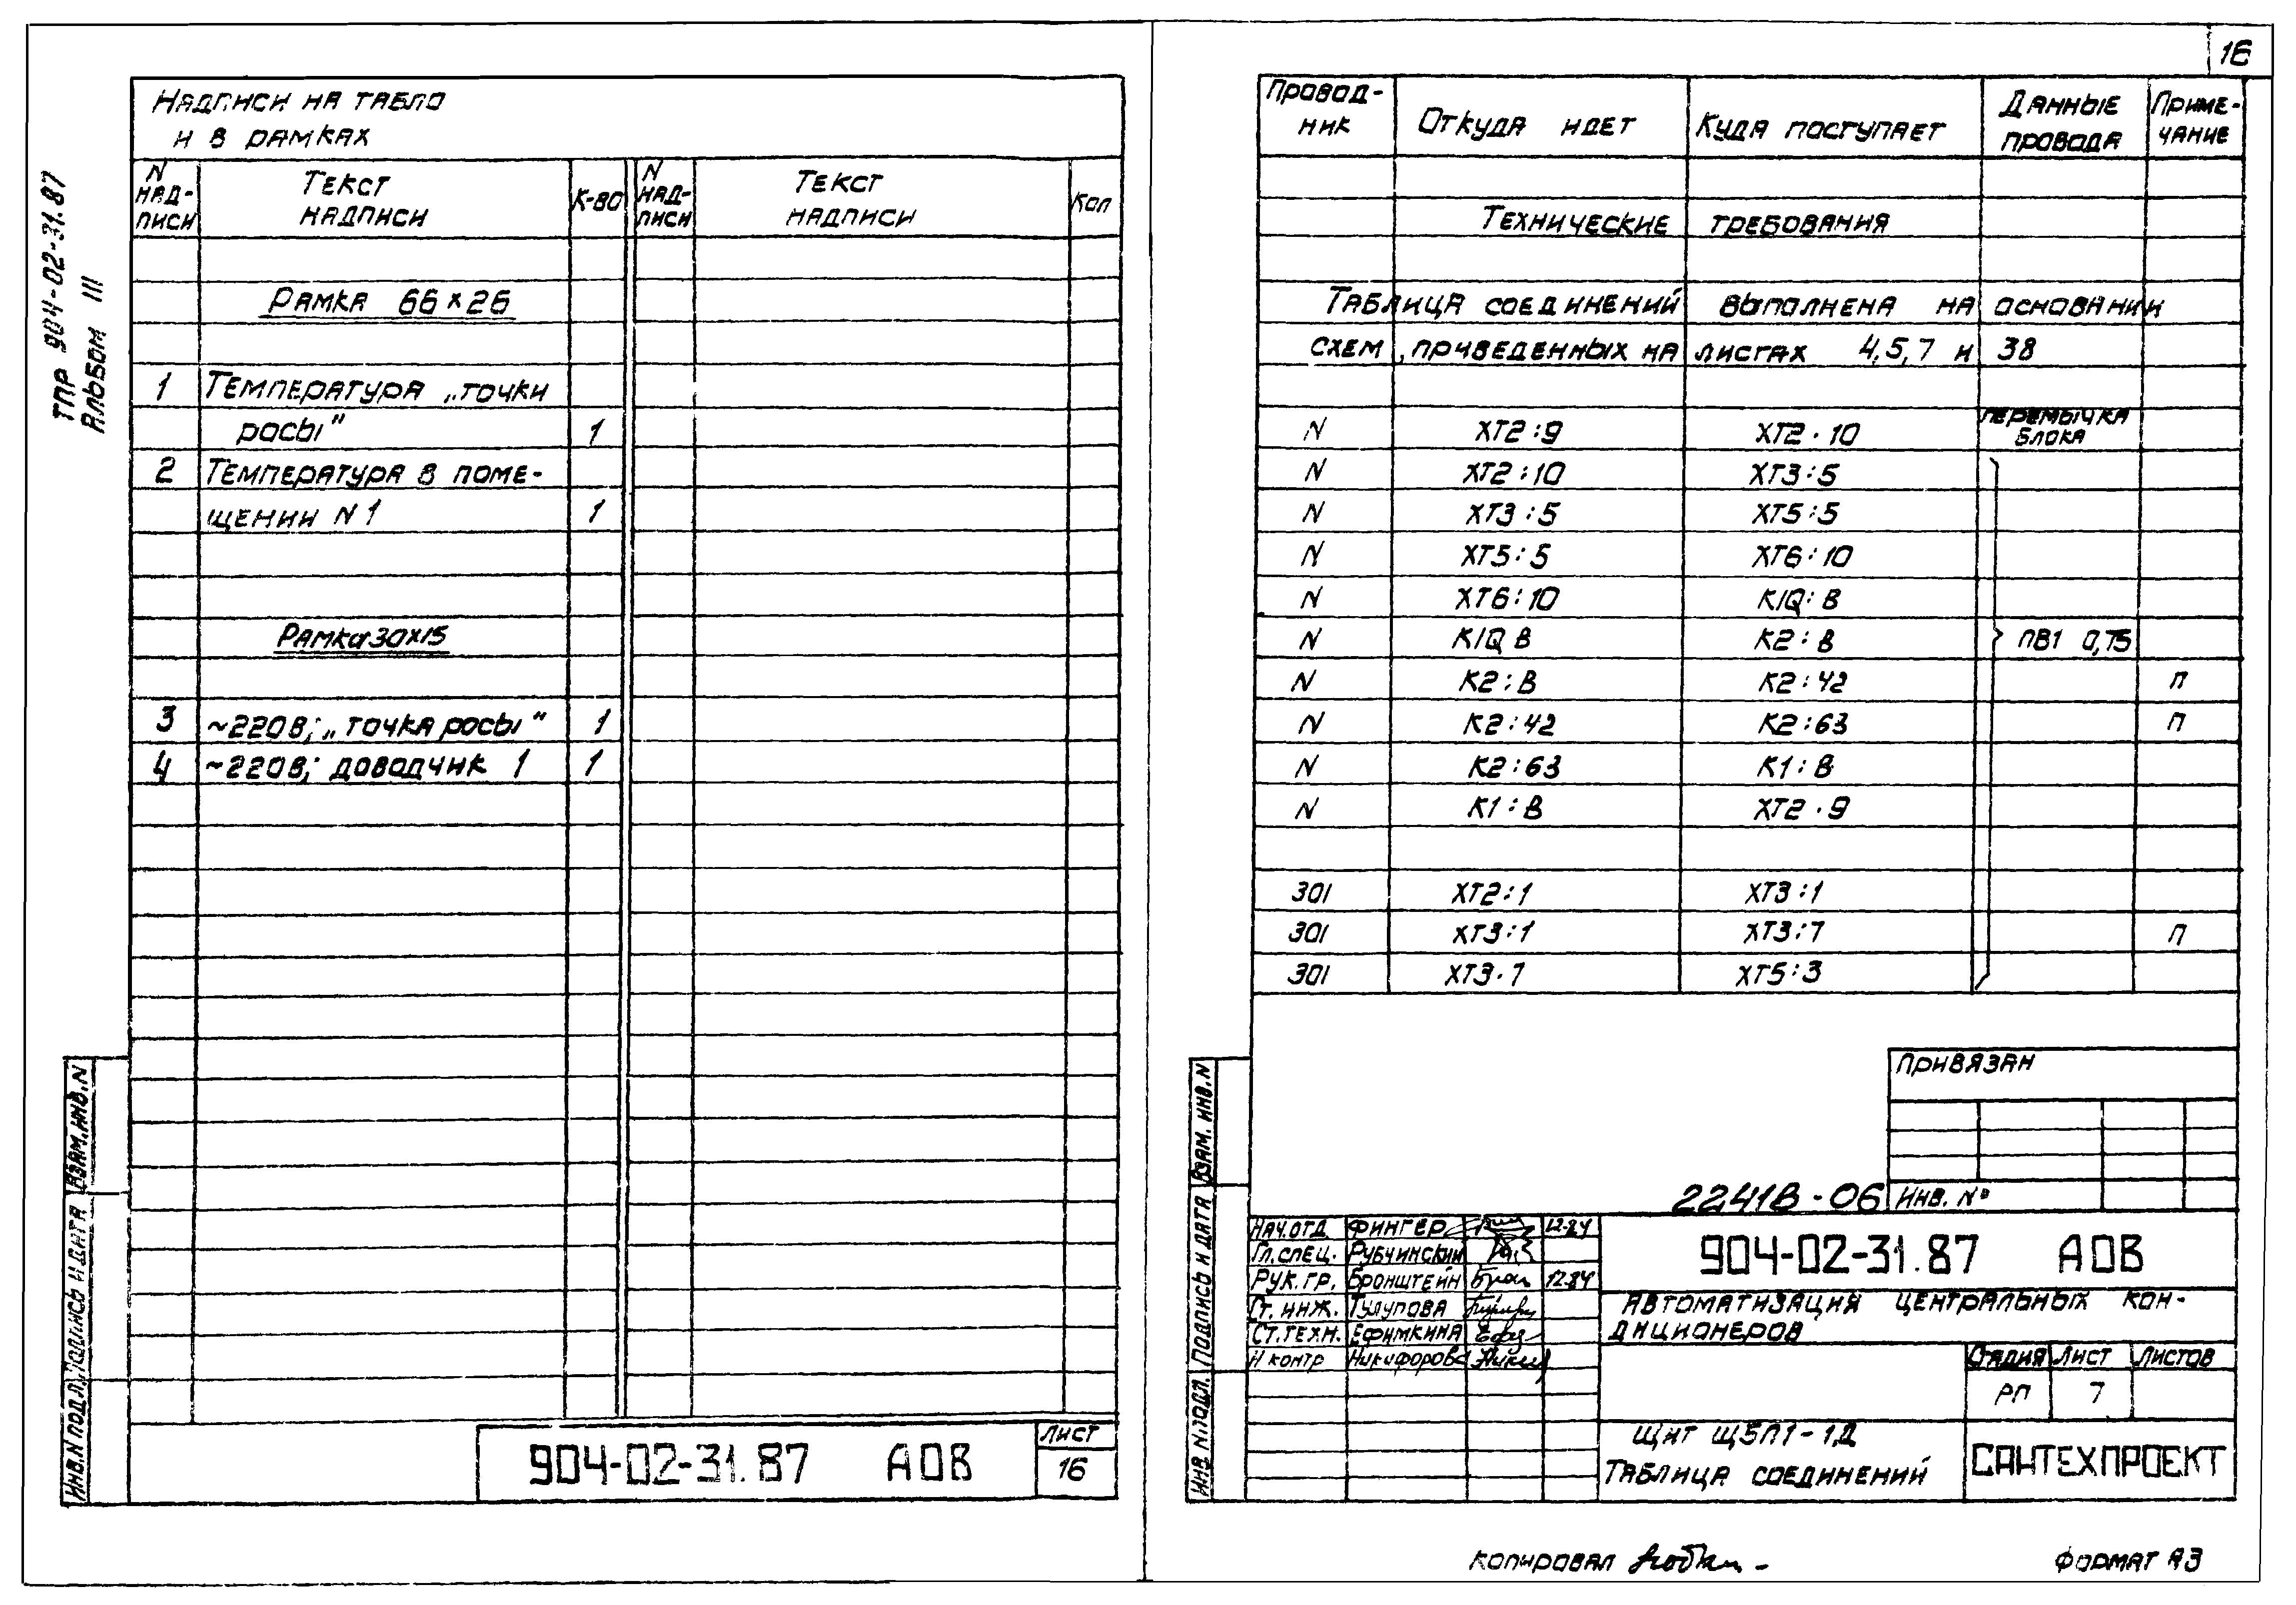 16
ТПР 904-02-31.87
Альбом III
Надписи на табло
и в рамках
N надписи Текст надписи К-во N надписи Текст надписи Кол
Рамка 66×26
1 Температура „точки
росы" 1
2 Температура в поме-
щении N1 1
Рамка 30×15
3 ~220В; „точка росы" 1
4 ~220В; доводчик 1 1
Взам.инв.N
Подпись и дата
Инв.N подл.
904-02-31.87 АОВ
Лист
16
Провод-
ник Откуда идет Куда поступает Данные провода Приме-
чание
Технические требования
Таблица соединений выполнена на основании
схем, приведенных на листах 4,5,7 и 38
N ХТ2:9 ХТ2·10 перемычка блока
N ХТ2:10 ХТ3:5
N ХТ3:5 ХТ5:5
N ХТ5:5 ХТ6:10
N ХТ6:10 К1Q:В
N К1Q В К2:В ПВ1 0,75
N К2:В К2:42 П
N К2:42 К2:63 П
N К2:63 К1:В
N К1:В ХТ2·9
301 ХТ2:1 ХТ3:1
301 ХТ3:1 ХТ3:7 П
301 ХТ3·7 ХТ5:3
Привязан
22418-06
Инв. №
Взам. инв.N
Подпись и дата
Инв N подл.
Нач.отд Фингер 12-84
Гл.спец. Рубчинский
Рук.гр. Бронштейн 12.84
Ст. инж. Тулупова
Ст.техн. Ефимкина
Н контр Никифорова
904-02-31.87 АОВ
Автоматизация центральных кон-
диционеров
Стадия Лист Листов
РП 7
Щит Щ5П1-1Д
Таблица соединений
САНТЕХПРОЕКТ
Копировал
Формат А3